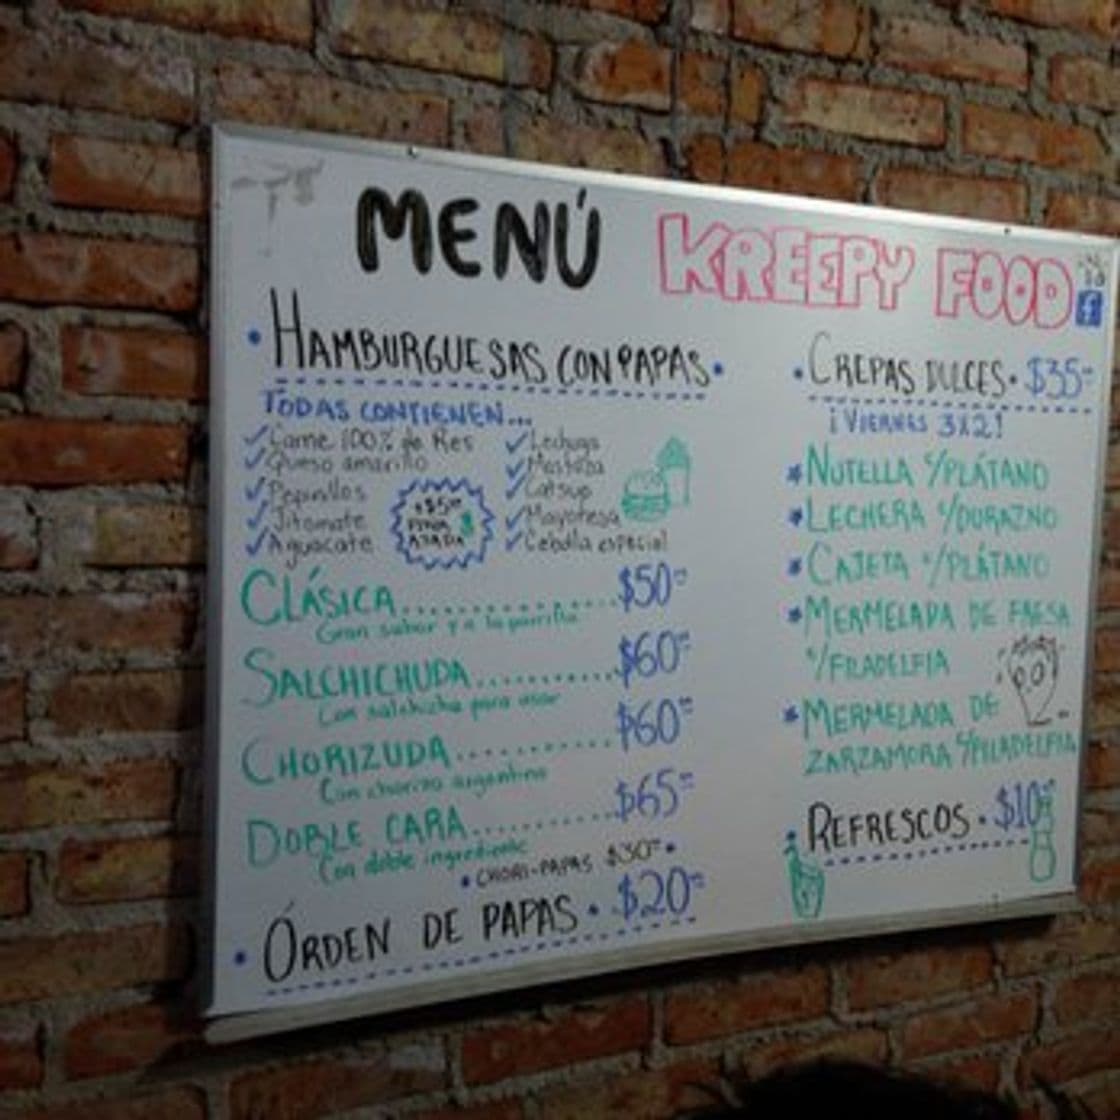 MENÚ
KREEPY FOOD
• HAMBURGUESAS CON PAPAS •
TODAS CONTIENEN...
✓ Carne 100% de Res
✓ Queso amarillo
✓ Pepinillos
✓ Jitomate
✓ Aguacate
✓ Lechuga
✓ Mostaza
✓ Catsup
✓ Mayonesa
✓ Cebolla especial
+$5
PIÑA
ASADA
CLÁSICA............... $50
Gran sabor a la parrilla
SALCHICHUDA........... $60
Con salchicha para asar
CHORIZUDA............. $60
Con chorizo argentino
DOBLE CARA............ $65
Con doble ingrediente
• CHORI-PAPAS $30 •
• ÓRDEN DE PAPAS • $20
• CREPAS DULCES • $35
¡VIERNES 3X2!
* NUTELLA C/PLÁTANO
* LECHERA C/DURAZNO
* CAJETA C/PLÁTANO
* MERMELADA DE FRESA
C/FILADELFIA
* MERMELADA DE
ZARZAMORA C/FILADELFIA
• REFRESCOS • $10